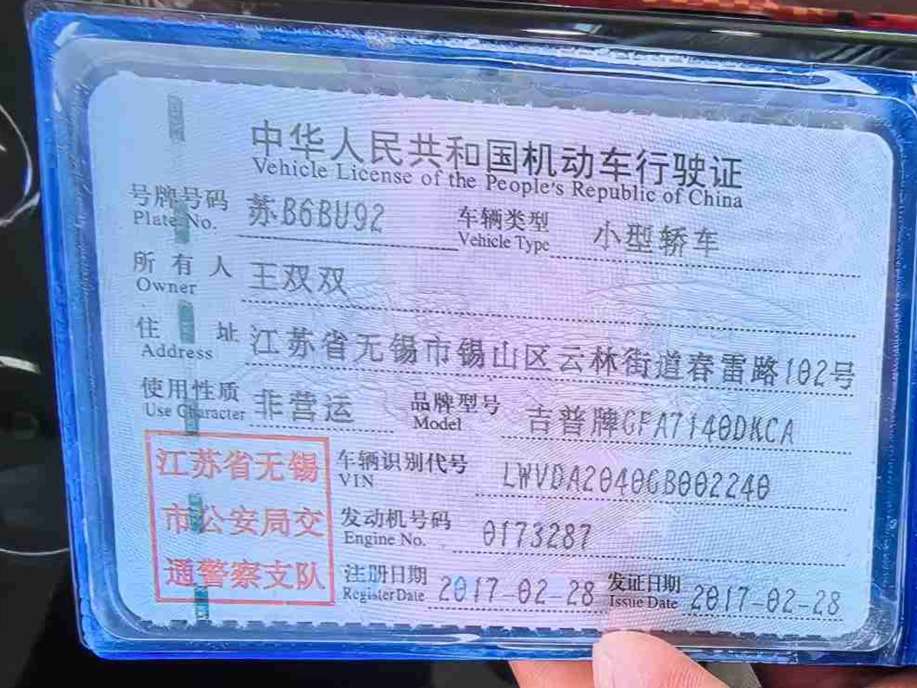 中华人民共和国机动车行驶证
Vehicle License of the People's Republic of China
号牌号码 苏B6BU92 车辆类型 小型轿车
Plate No. Vehicle Type
所有人 王双双
Owner
住址 江苏省无锡市锡山区云林街道春雷路102号
Address
使用性质 非营运 品牌型号 吉普牌GFA7140DKCA
Use Character Model
江苏省无锡 车辆识别代号 LWVDA2040GB002240
VIN
市公安局交 发动机号码 0173287
Engine No.
通警察支队 注册日期 2017-02-28 发证日期 2017-02-28
Register Date Issue Date